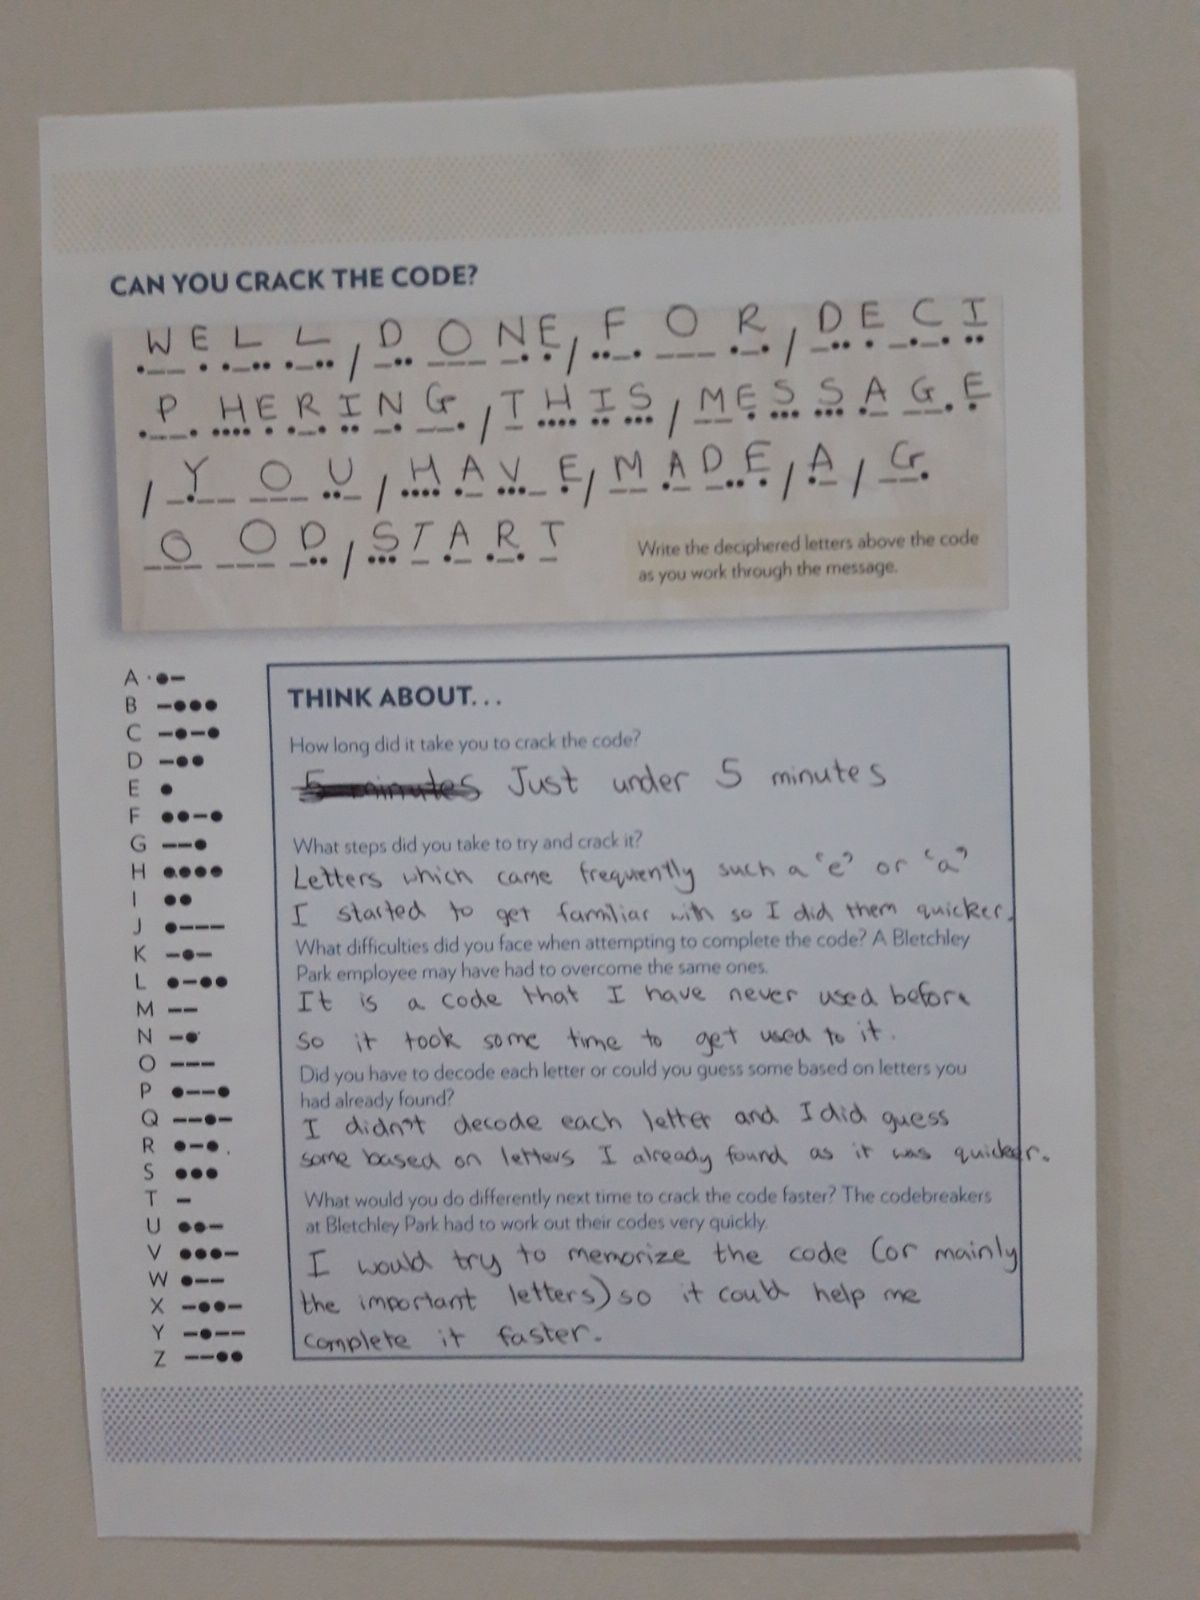 CAN YOU CRACK THE CODE?
WELL / DONE / FOR / DECI
•–– • •–•• •–•• / –•• ––– –• • / ••–• ––– •–• / –•• • –•–• ••
PHERING / THIS / MESSAGE
•––• •••• • •–• •• –• ––• / – •••• •• ••• / –– • ••• ••• •– ––• •
/ YOU / HAVE / MADE / A / G
/ –•–– ––– ••– / •••• •– •••– • / –– •– –•• • / •– / ––•
OOD / START
––– ––– –•• / ••• – •– •–• –
Write the deciphered letters above the code
as you work through the message.
A •–
B –•••
C –•–•
D –••
E •
F ••–•
G ––•
H ••••
I ••
J •–––
K –•–
L •–••
M ––
N –•
O –––
P •––•
Q ––•–
R •–•
S •••
T –
U ••–
V •••–
W •––
X –••–
Y –•––
Z ––••
THINK ABOUT...
How long did it take you to crack the code?
5 minutes Just under 5 minutes
What steps did you take to try and crack it?
Letters which came frequently such a 'e' or 'a'
I started to get familiar with so I did them quicker.
What difficulties did you face when attempting to complete the code? A Bletchley
Park employee may have had to overcome the same ones.
It is a code that I have never used before
so it took some time to get used to it.
Did you have to decode each letter or could you guess some based on letters you
had already found?
I didn't decode each letter and I did guess
some based on letters I already found as it was quicker.
What would you do differently next time to crack the code faster? The codebreakers
at Bletchley Park had to work out their codes very quickly.
I would try to memorize the code (or mainly
the important letters) so it could help me
complete it faster.